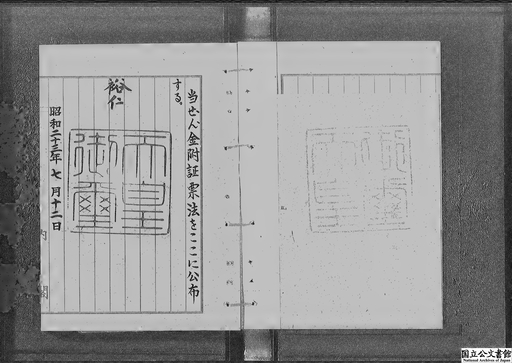 当せん金附証票法をここに公布
する。
裕仁
天皇
御璽
昭和二十三年七月十二日
内閣
国立公文書館
National Archives of Japan